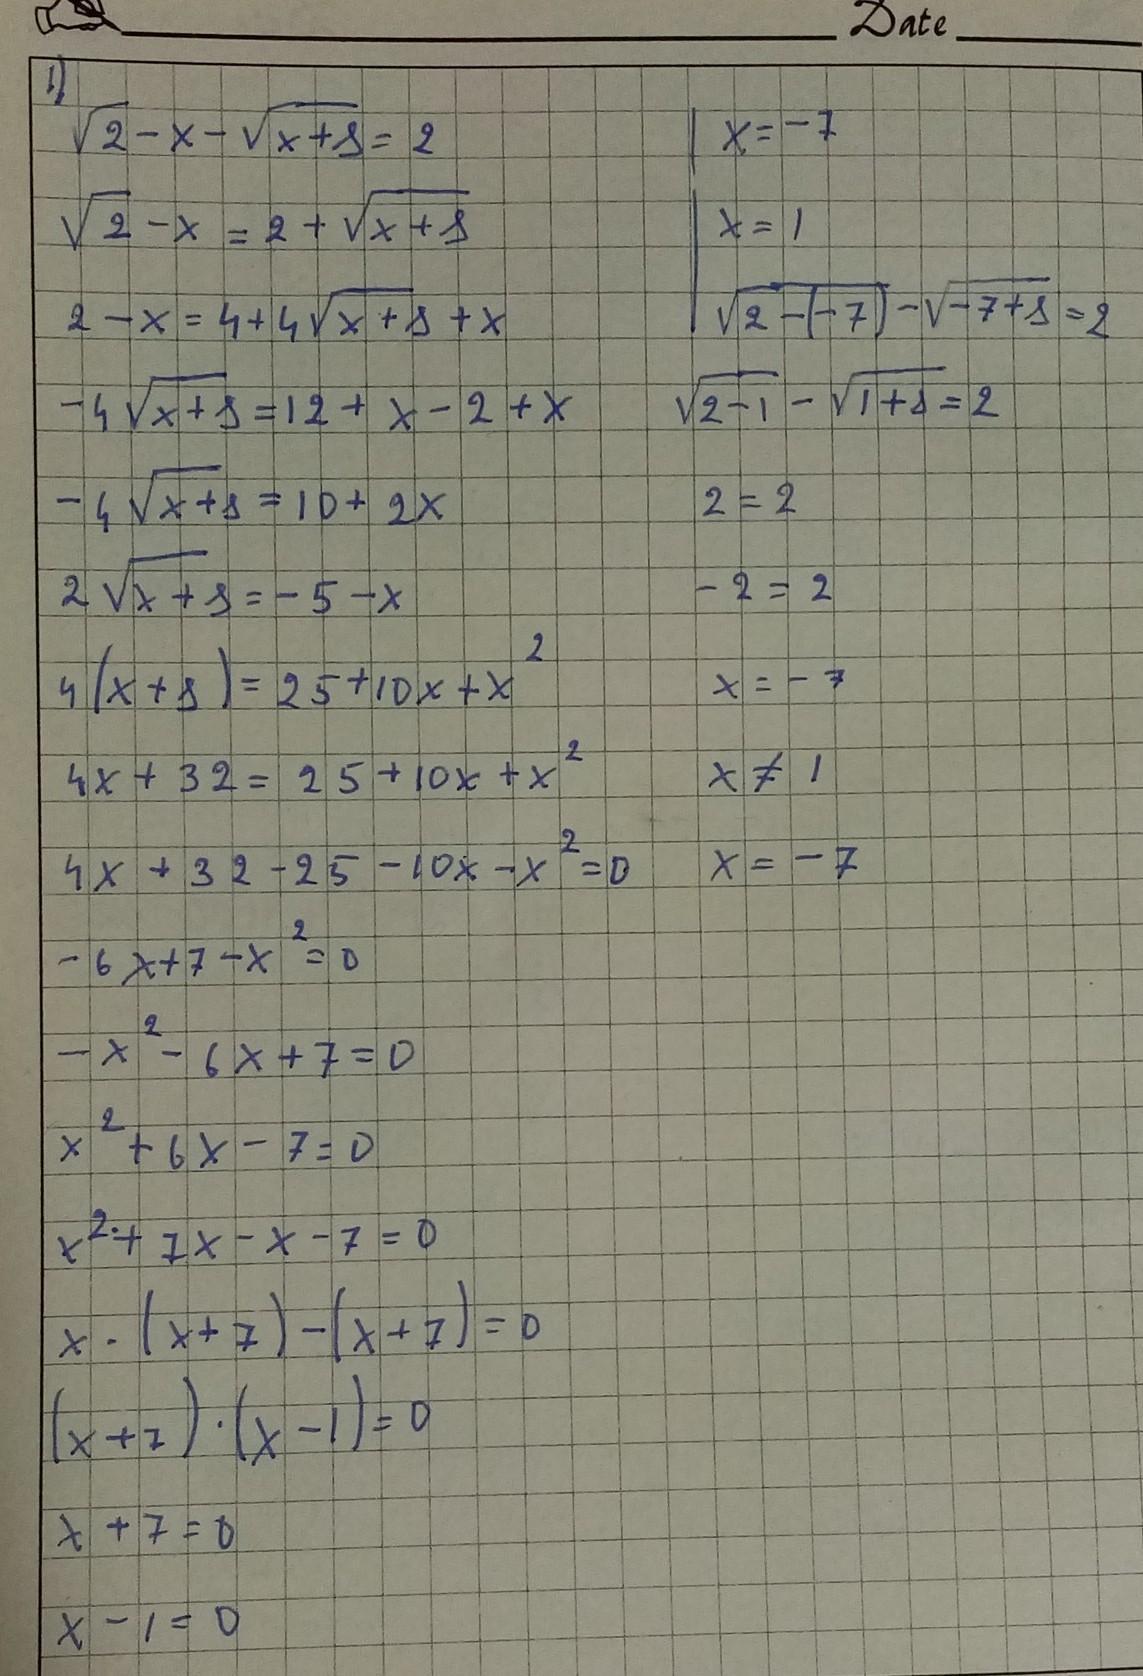 Date
1)
√2 - x - √x+8 = 2
√2 - x = 2 + √x+8
2 - x = 4 + 4√x+8 + x
-4√x+8 = 12 + x - 2 + x
-4√x+8 = 10 + 2x
2√x+8 = -5 - x
4(x+8) = 25+10x+x²
4x + 32 = 25+10x+x²
4x + 32 - 25 - 10x - x² = 0
-6x+7-x² = 0
-x² - 6x + 7 = 0
x² + 6x - 7 = 0
x² + 7x - x - 7 = 0
x · (x+7) - (x+7) = 0
(x+7) · (x-1) = 0
x + 7 = 0
x - 1 = 0
x = -7
x = 1
√2-(-7) - √-7+8 = 2
√2-1 - √1+8 = 2
2 = 2
-2 = 2
x = -7
x ≠ 1
x = -7